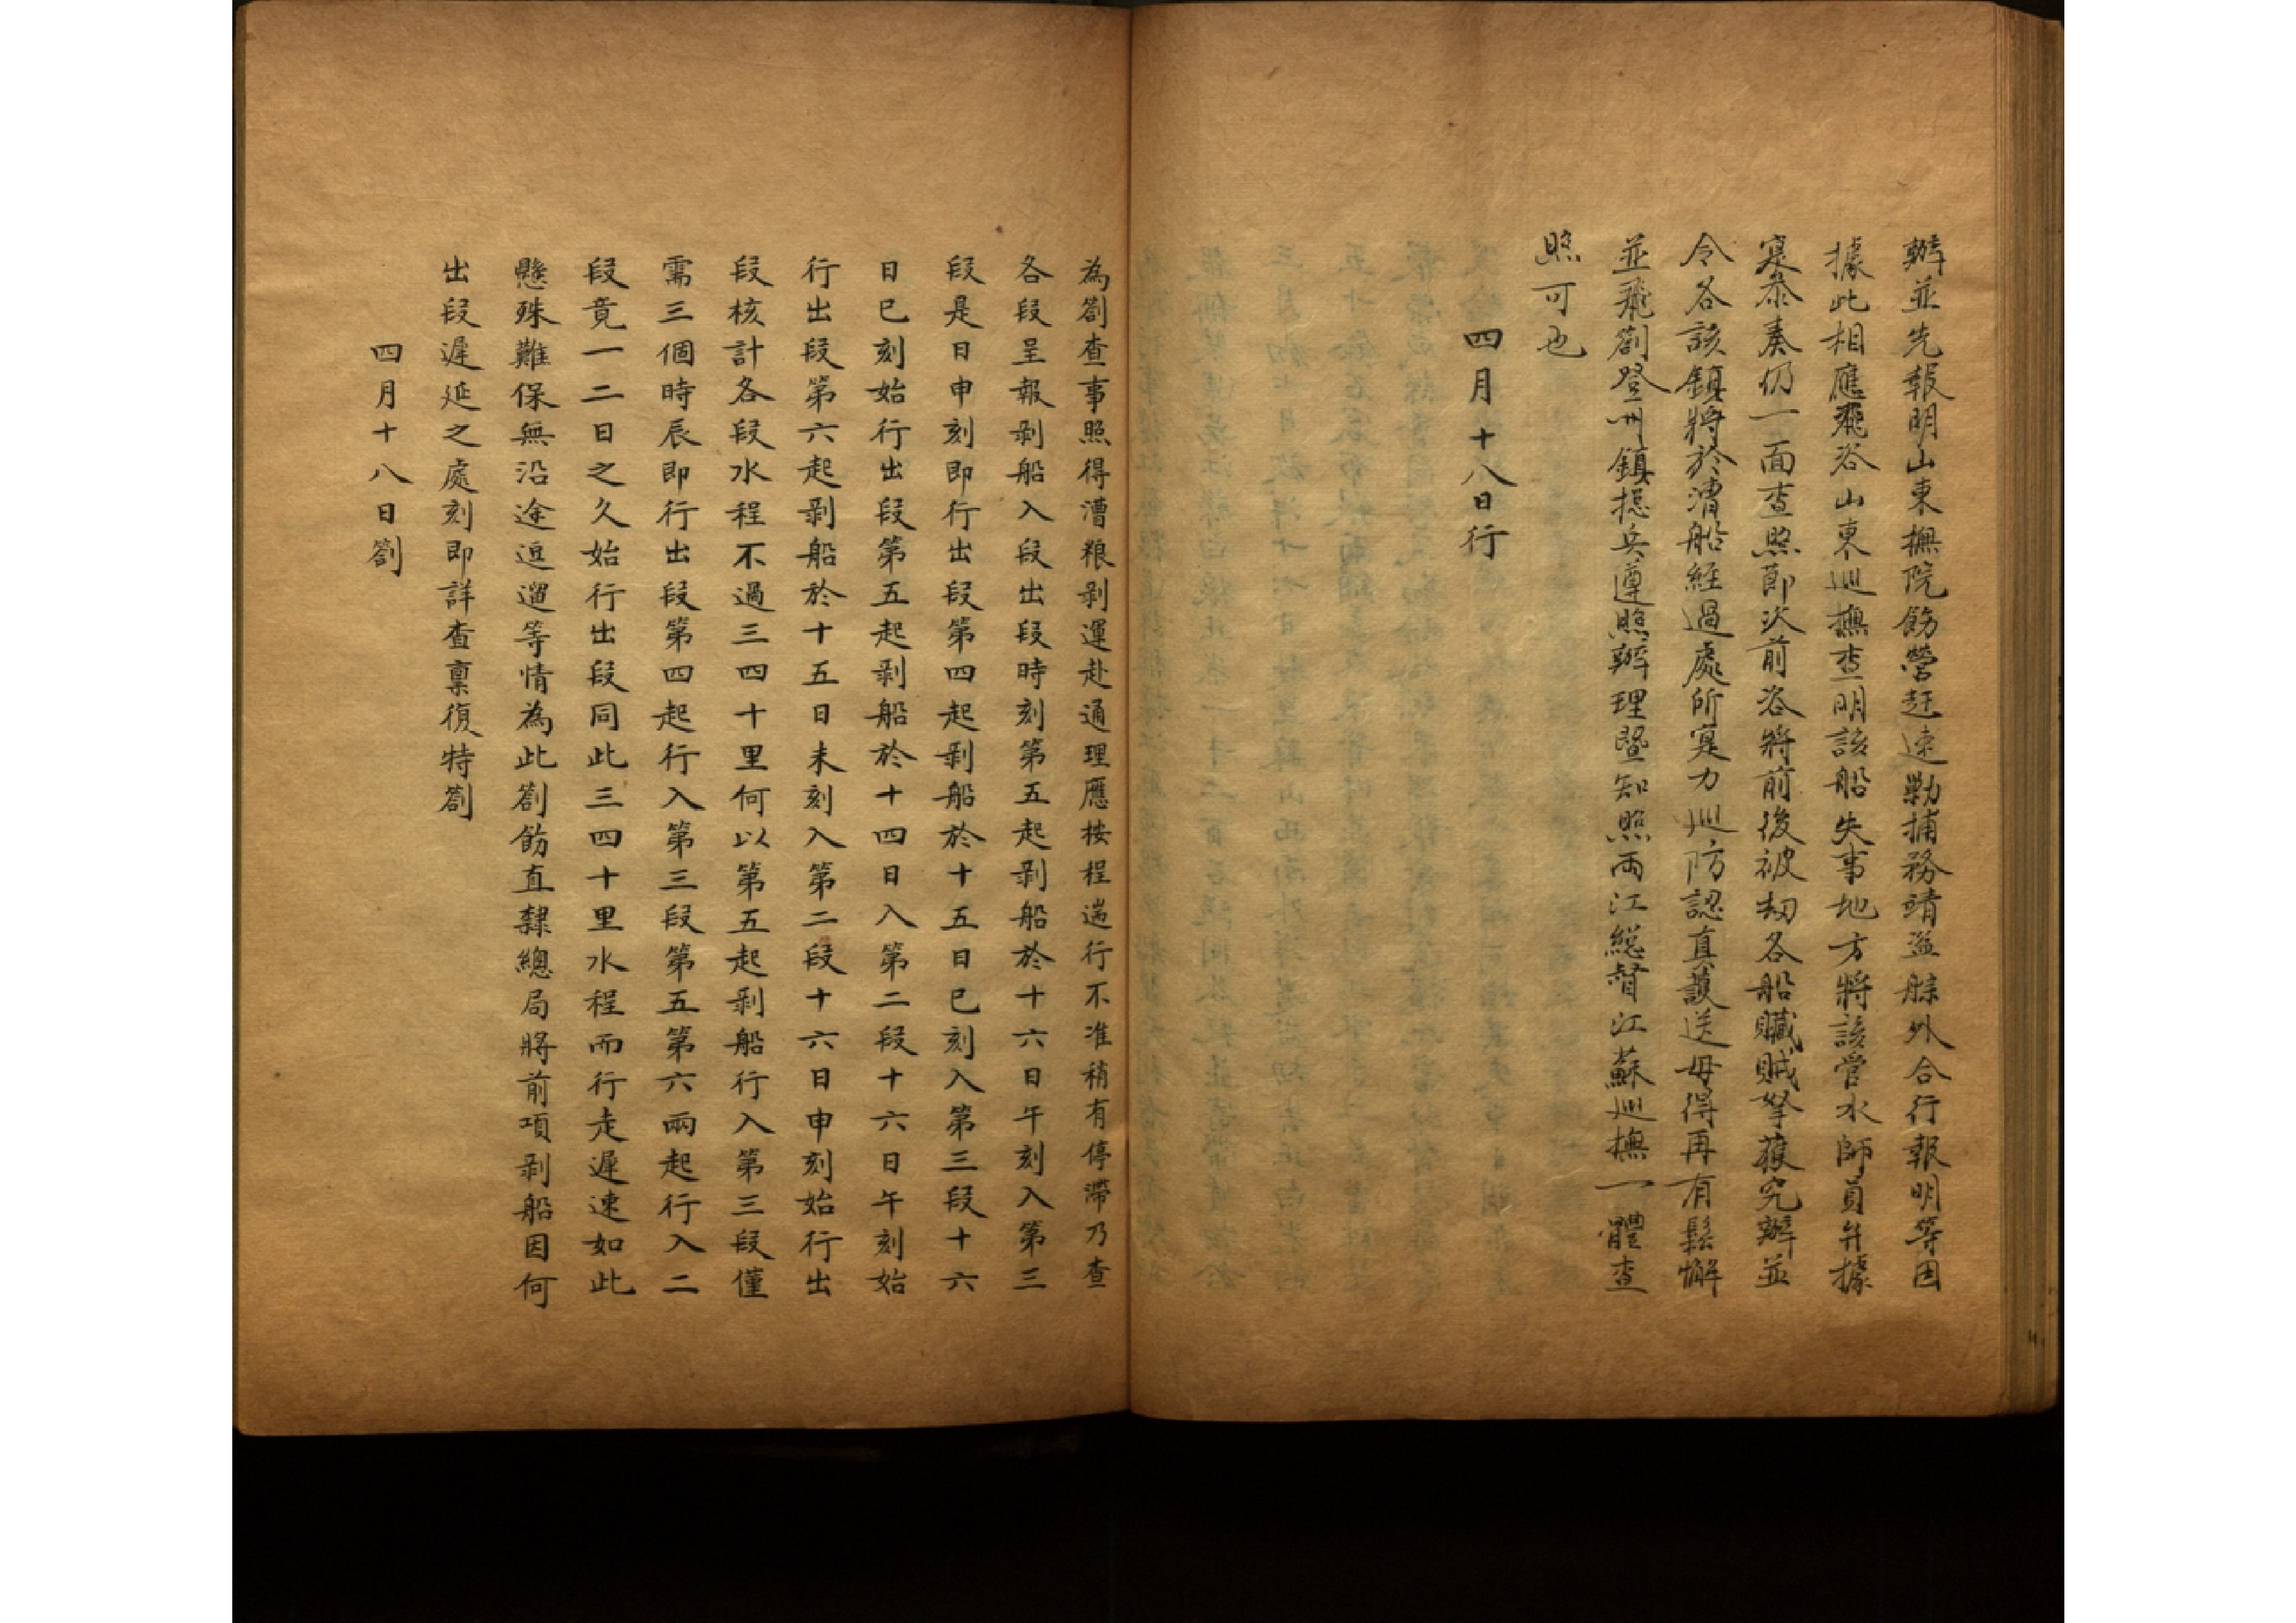 辦並先報明山東撫院飭營赶速勦捕務靖盜艅外合行報明等因
據此相應飛咨山東巡撫查明該船失事地方將該管水師員弁據
寔叅奏仍一面查照節次前咨將前後被刼各船贓賊拏獲究辦並
令各該鎮將於漕船經過處所寔力巡防認真護送毋得再有鬆懈
並飛劄登州鎮揔兵遵照辦理暨知照兩江総督江蘇巡撫一體查
照可也
四月十八日行
為劄查事照得漕粮剥運赴通理應按程遄行不准稍有停滯乃查
各段呈報剥船入段出段時刻第五起剥船於十六日午刻入第三
段是日申刻即行出段第四起剥船於十五日巳刻入第三段十六
日巳刻始行出段第五起剥船於十四日入第二段十六日午刻始
行出段第六起剥船於十五日未刻入第二段十六日申刻始行出
段核計各段水程不過三四十里何以第五起剥船行入第三段僅
需三個時辰即行出段第四起行入第三段第五第六兩起行入二
段竟一二日之久始行出段同此三四十里水程而行走遲速如此
懸殊難保無沿途逗遛等情為此劄飭直隸總局將前項剥船因何
出段遲延之處刻即詳查禀復特劄
四月十八日劄